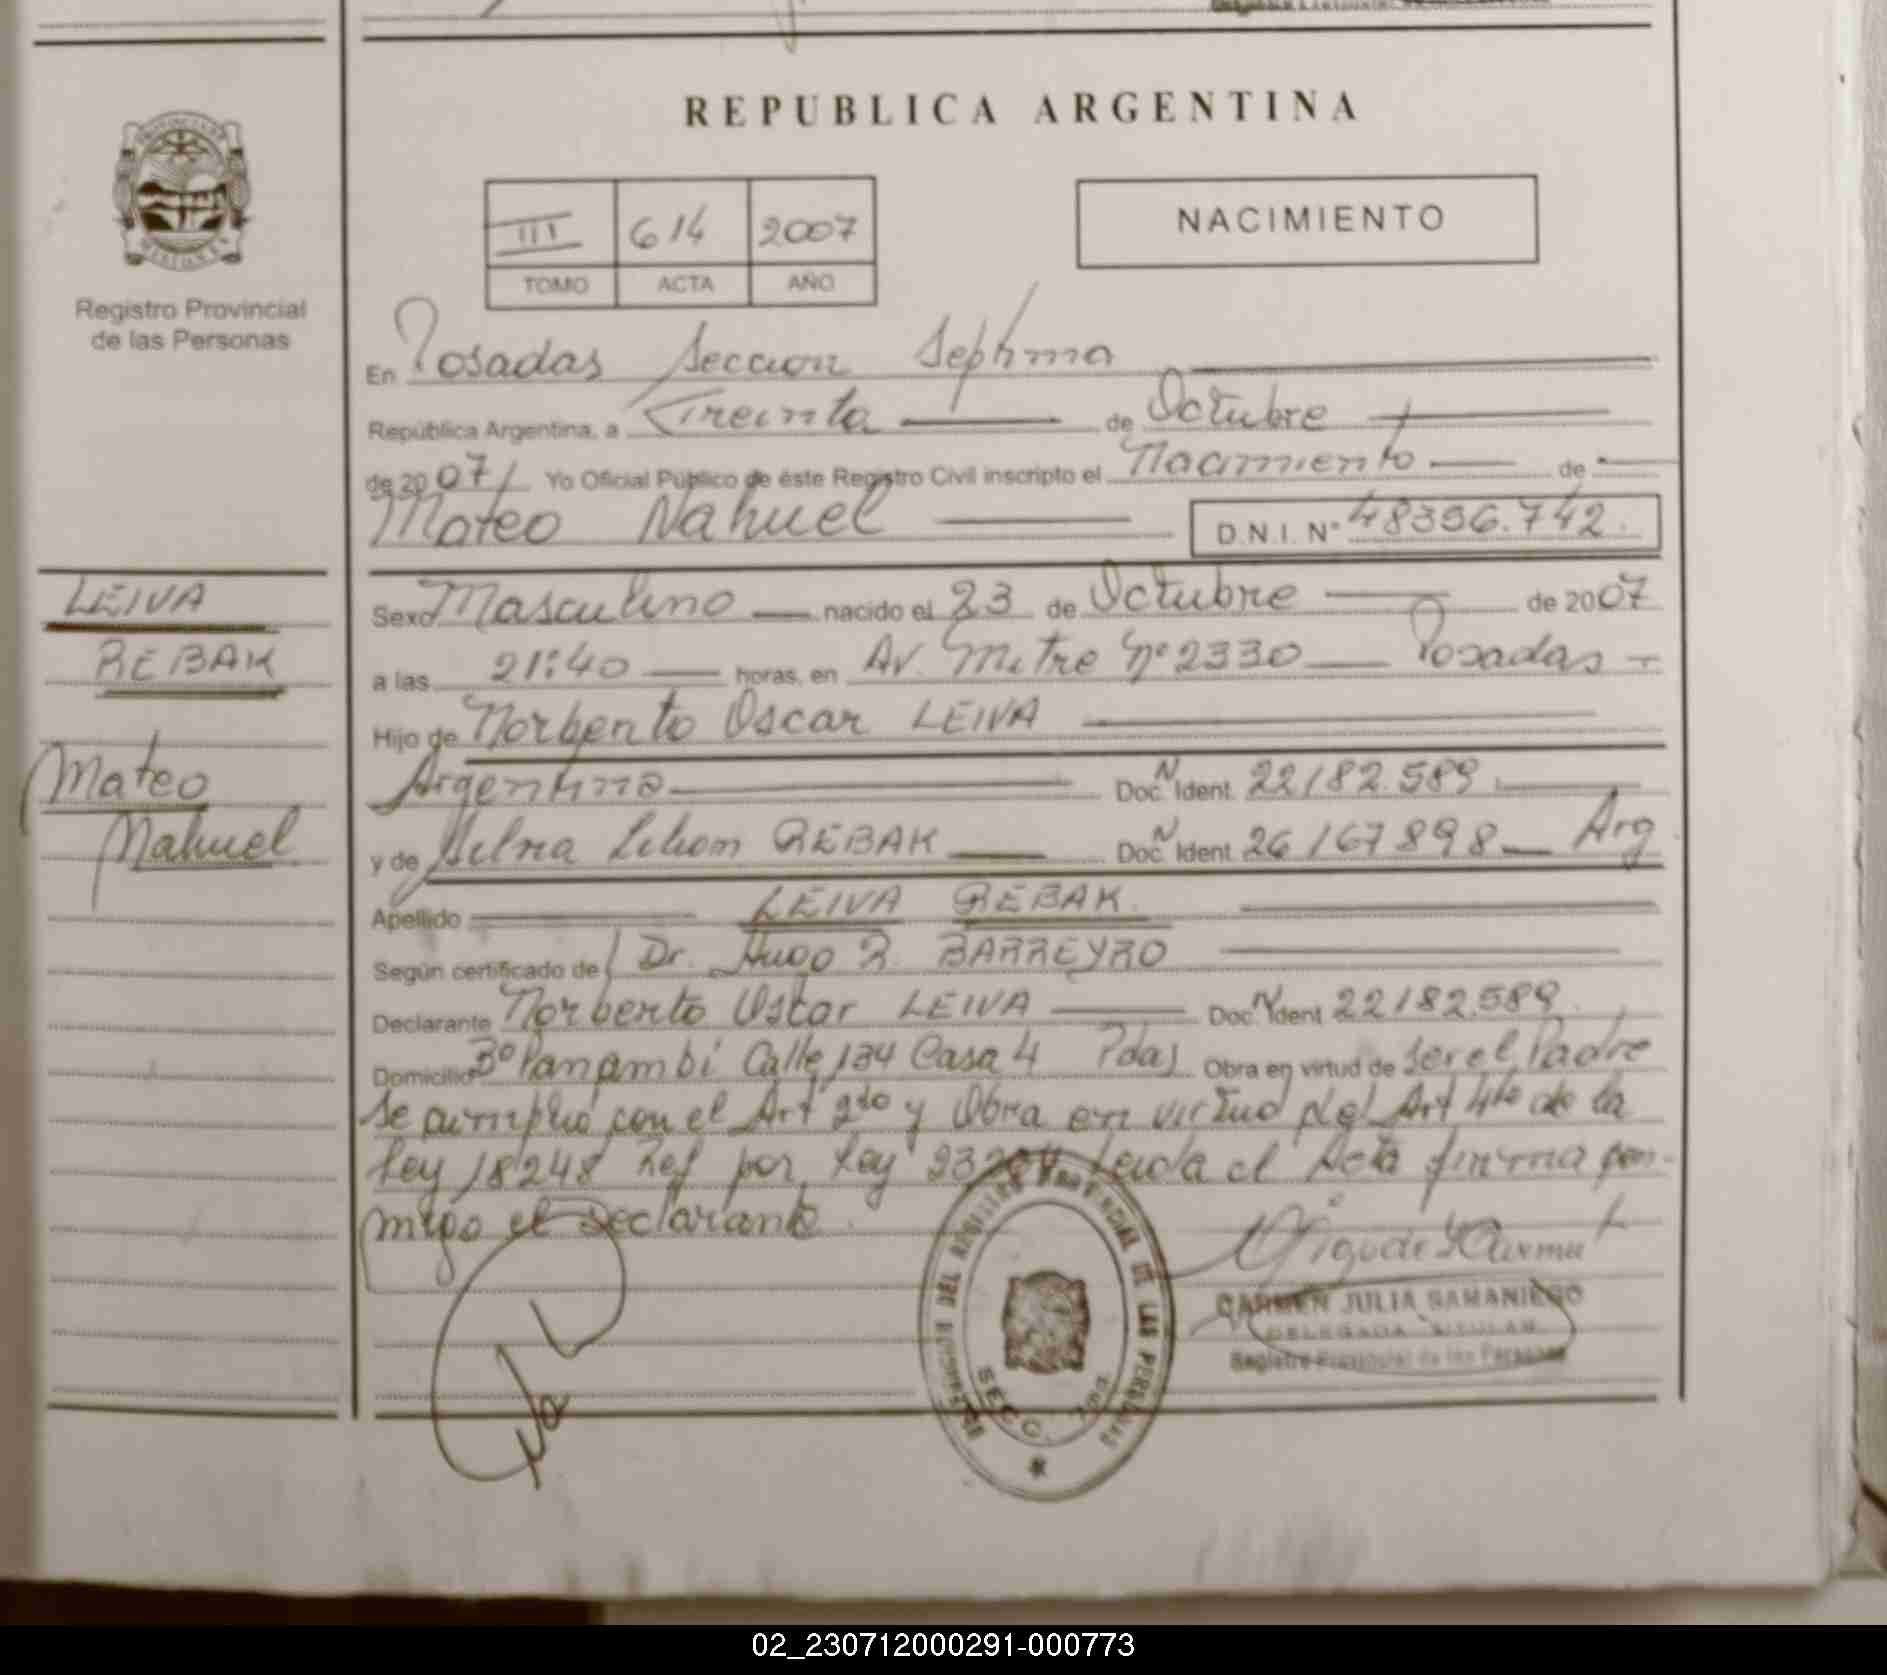 REPUBLICA ARGENTINA
III 614 2007
TOMO ACTA AÑO
NACIMIENTO
Registro Provincial
de las Personas
En Posadas Seccion Septima
República Argentina, a Treinta de Octubre
de 2007 Yo Oficial Público de éste Registro Civil inscripto el Nacimiento de
Mateo Nahuel D.N.I. Nº 48356.742.
LEIVA
REBAK
Mateo
Nahuel
Sexo Masculino nacido el 23 de Octubre de 2007
a las 21:40 horas, en Av. Mitre Nº 2330 Posadas
Hijo de Norberto Oscar LEIVA
Argentina Doc. N Ident. 22182.589
y de REBAK Doc. N Ident. 26167898 Arg
Apellido LEIVA REBAK.
Según certificado de Dr. Hugo R. BARREYRO
Declarante Norberto Oscar LEIVA Doc. N Ident 22182.589.
Domicilio Bº Panambi Calle 134 Casa 4 Pdas Obra en virtud de Ser el Padre
Se cumplió con el Art 2do y Obra en virtud del Art 4to de la
Ley 18248 Ref por Ley Leida el Acta firma con-
migo el Declarante.
DEL REGISTRO PROVINCIAL DE LAS PERSONAS
SECC. 7ma
CARMEN JULIA SAMANIEGO
DELEGADA TITULAR
Registro Provincial de las Personas
02_230712000291-000773